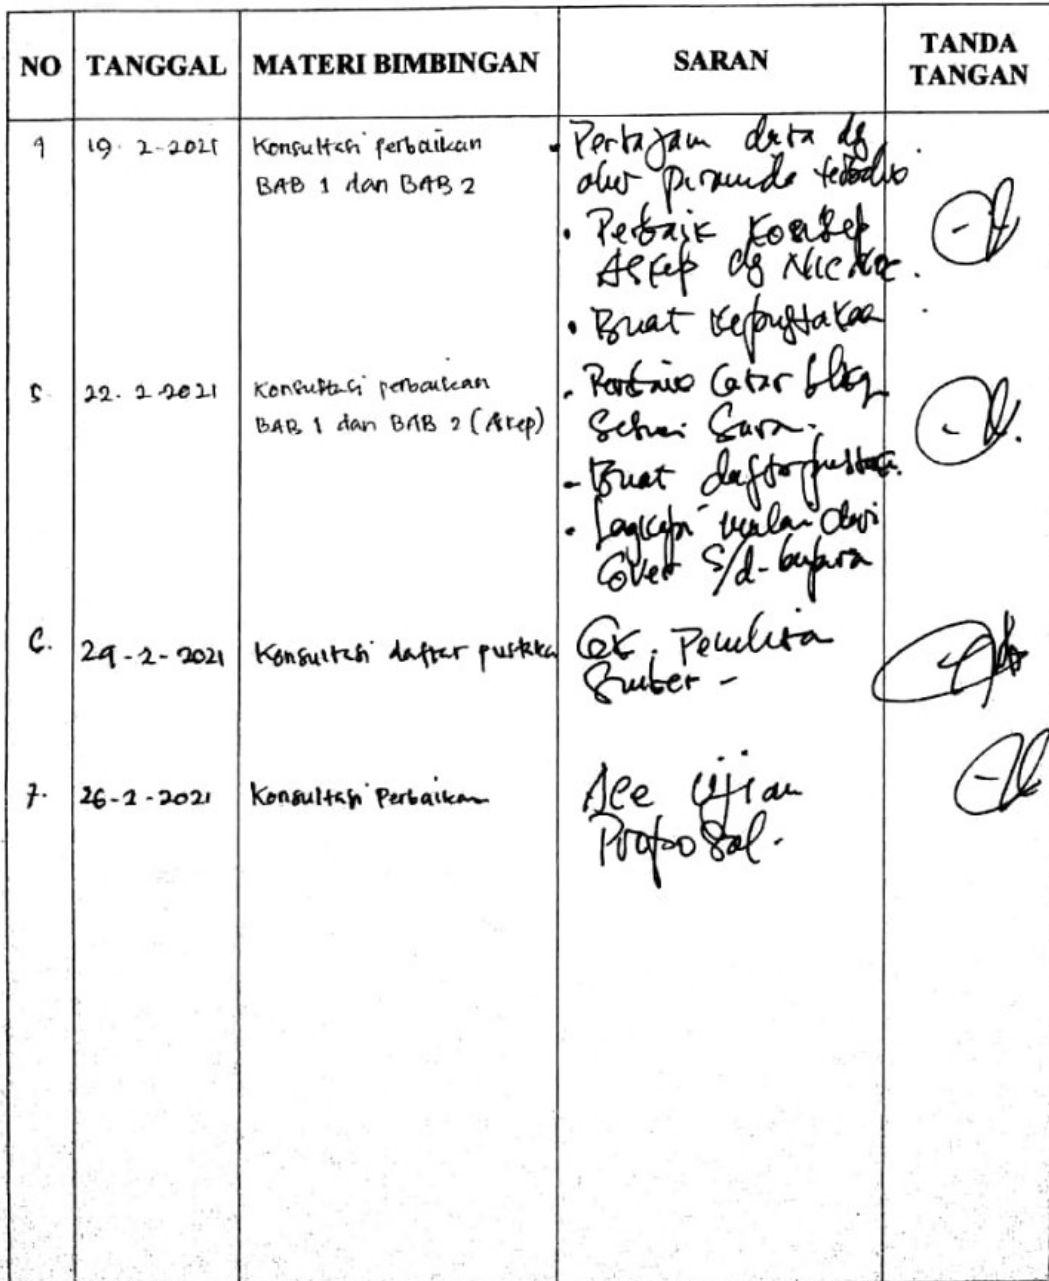 NO TANGGAL MATERI BIMBINGAN SARAN TANDA TANGAN
4 19. 2-2021 Konsultasi perbaikan • Pertajam data dg
BAB 1 dan BAB 2 alur piramida
• Perbaik Konsep
Askep dg NIC NOC.
• Buat Kepustakaa
5. 22. 2-2021 Konsultasi perbaikan • Latar
BAB 1 dan BAB 2 (Askep) Sesuai Sara.
- Buat daftar pustaka.
• Lengkapi mulai dari
Cover S/d
6. 24-2-2021 Konsultasi daftar pustaka Cek. Penulisa
Sumber -
7. 26-2-2021 Konsultasi Perbaikan Acc Ujian
Proposal.